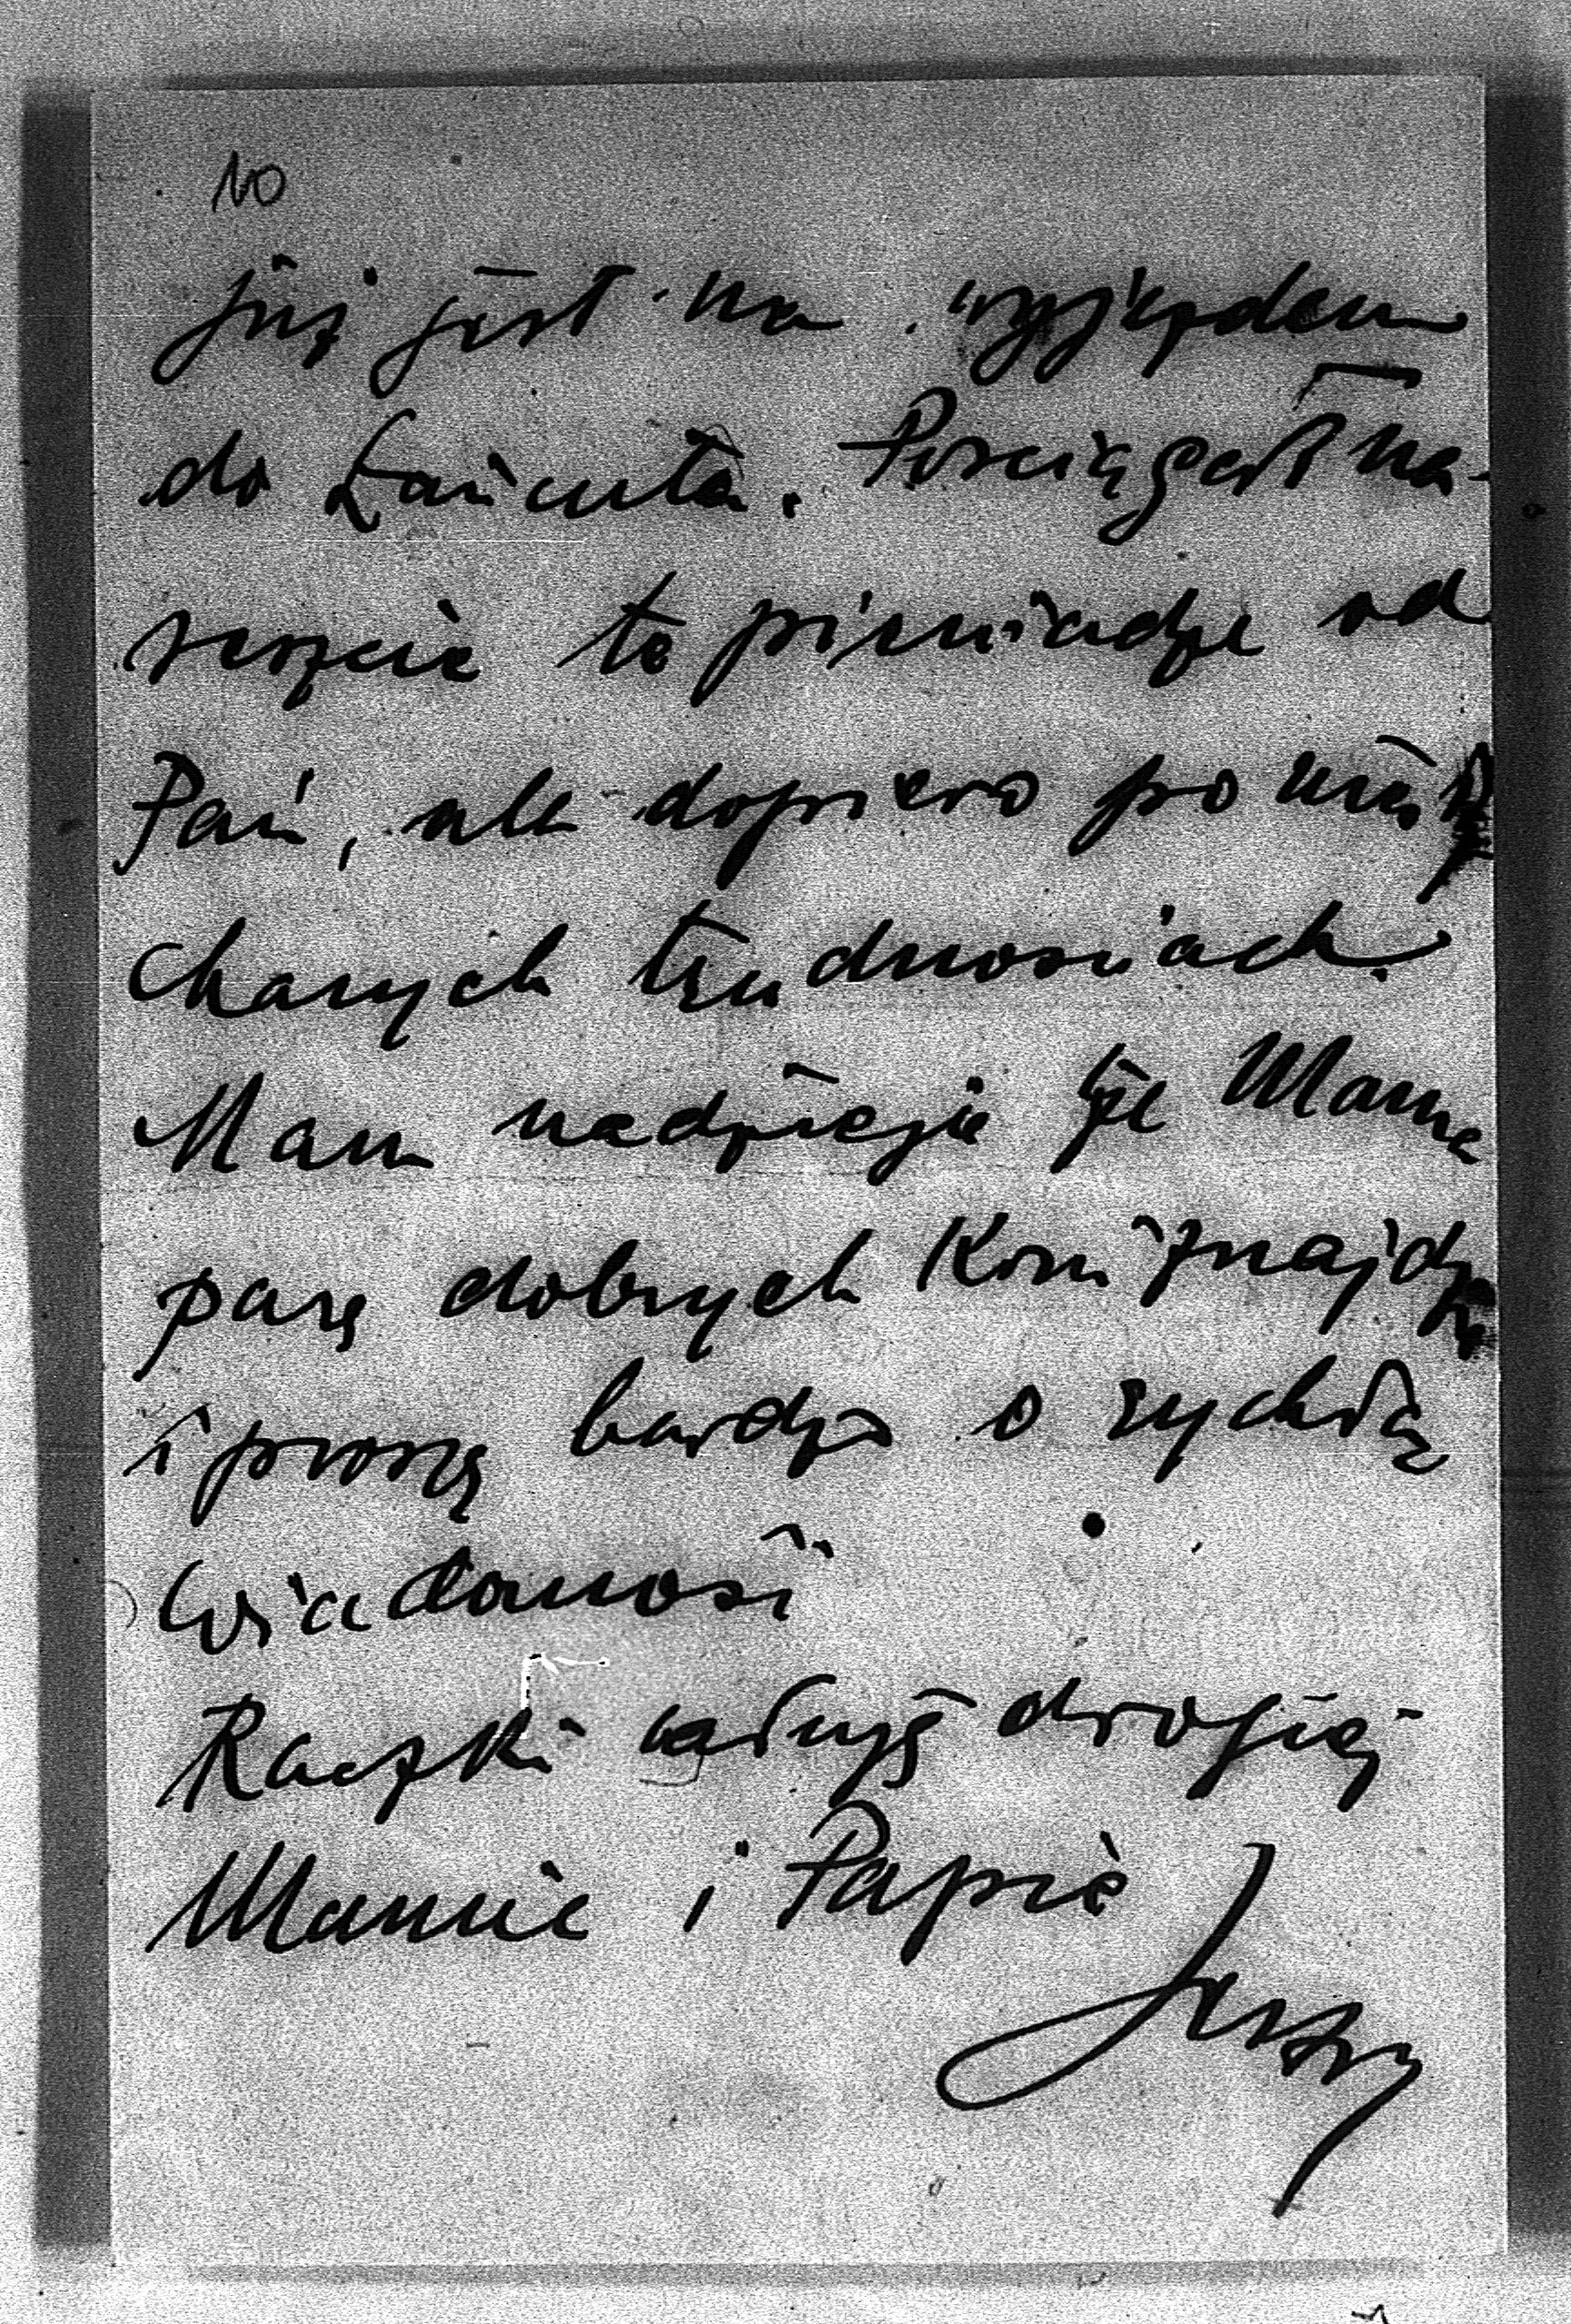 10
już jest na wyjezdem
do Łańcuta. Pościągał na-
reszcie te pieniadze od
Pań, ale dopiero po
chanych trudnosciach.
Mam nadzieje że Mama
parę dobrych Koni znajdzie
i proszę bardzo o rychłą
Wiadomość
Raczki całuję drogiej
Mamie i Papie
Jerzy